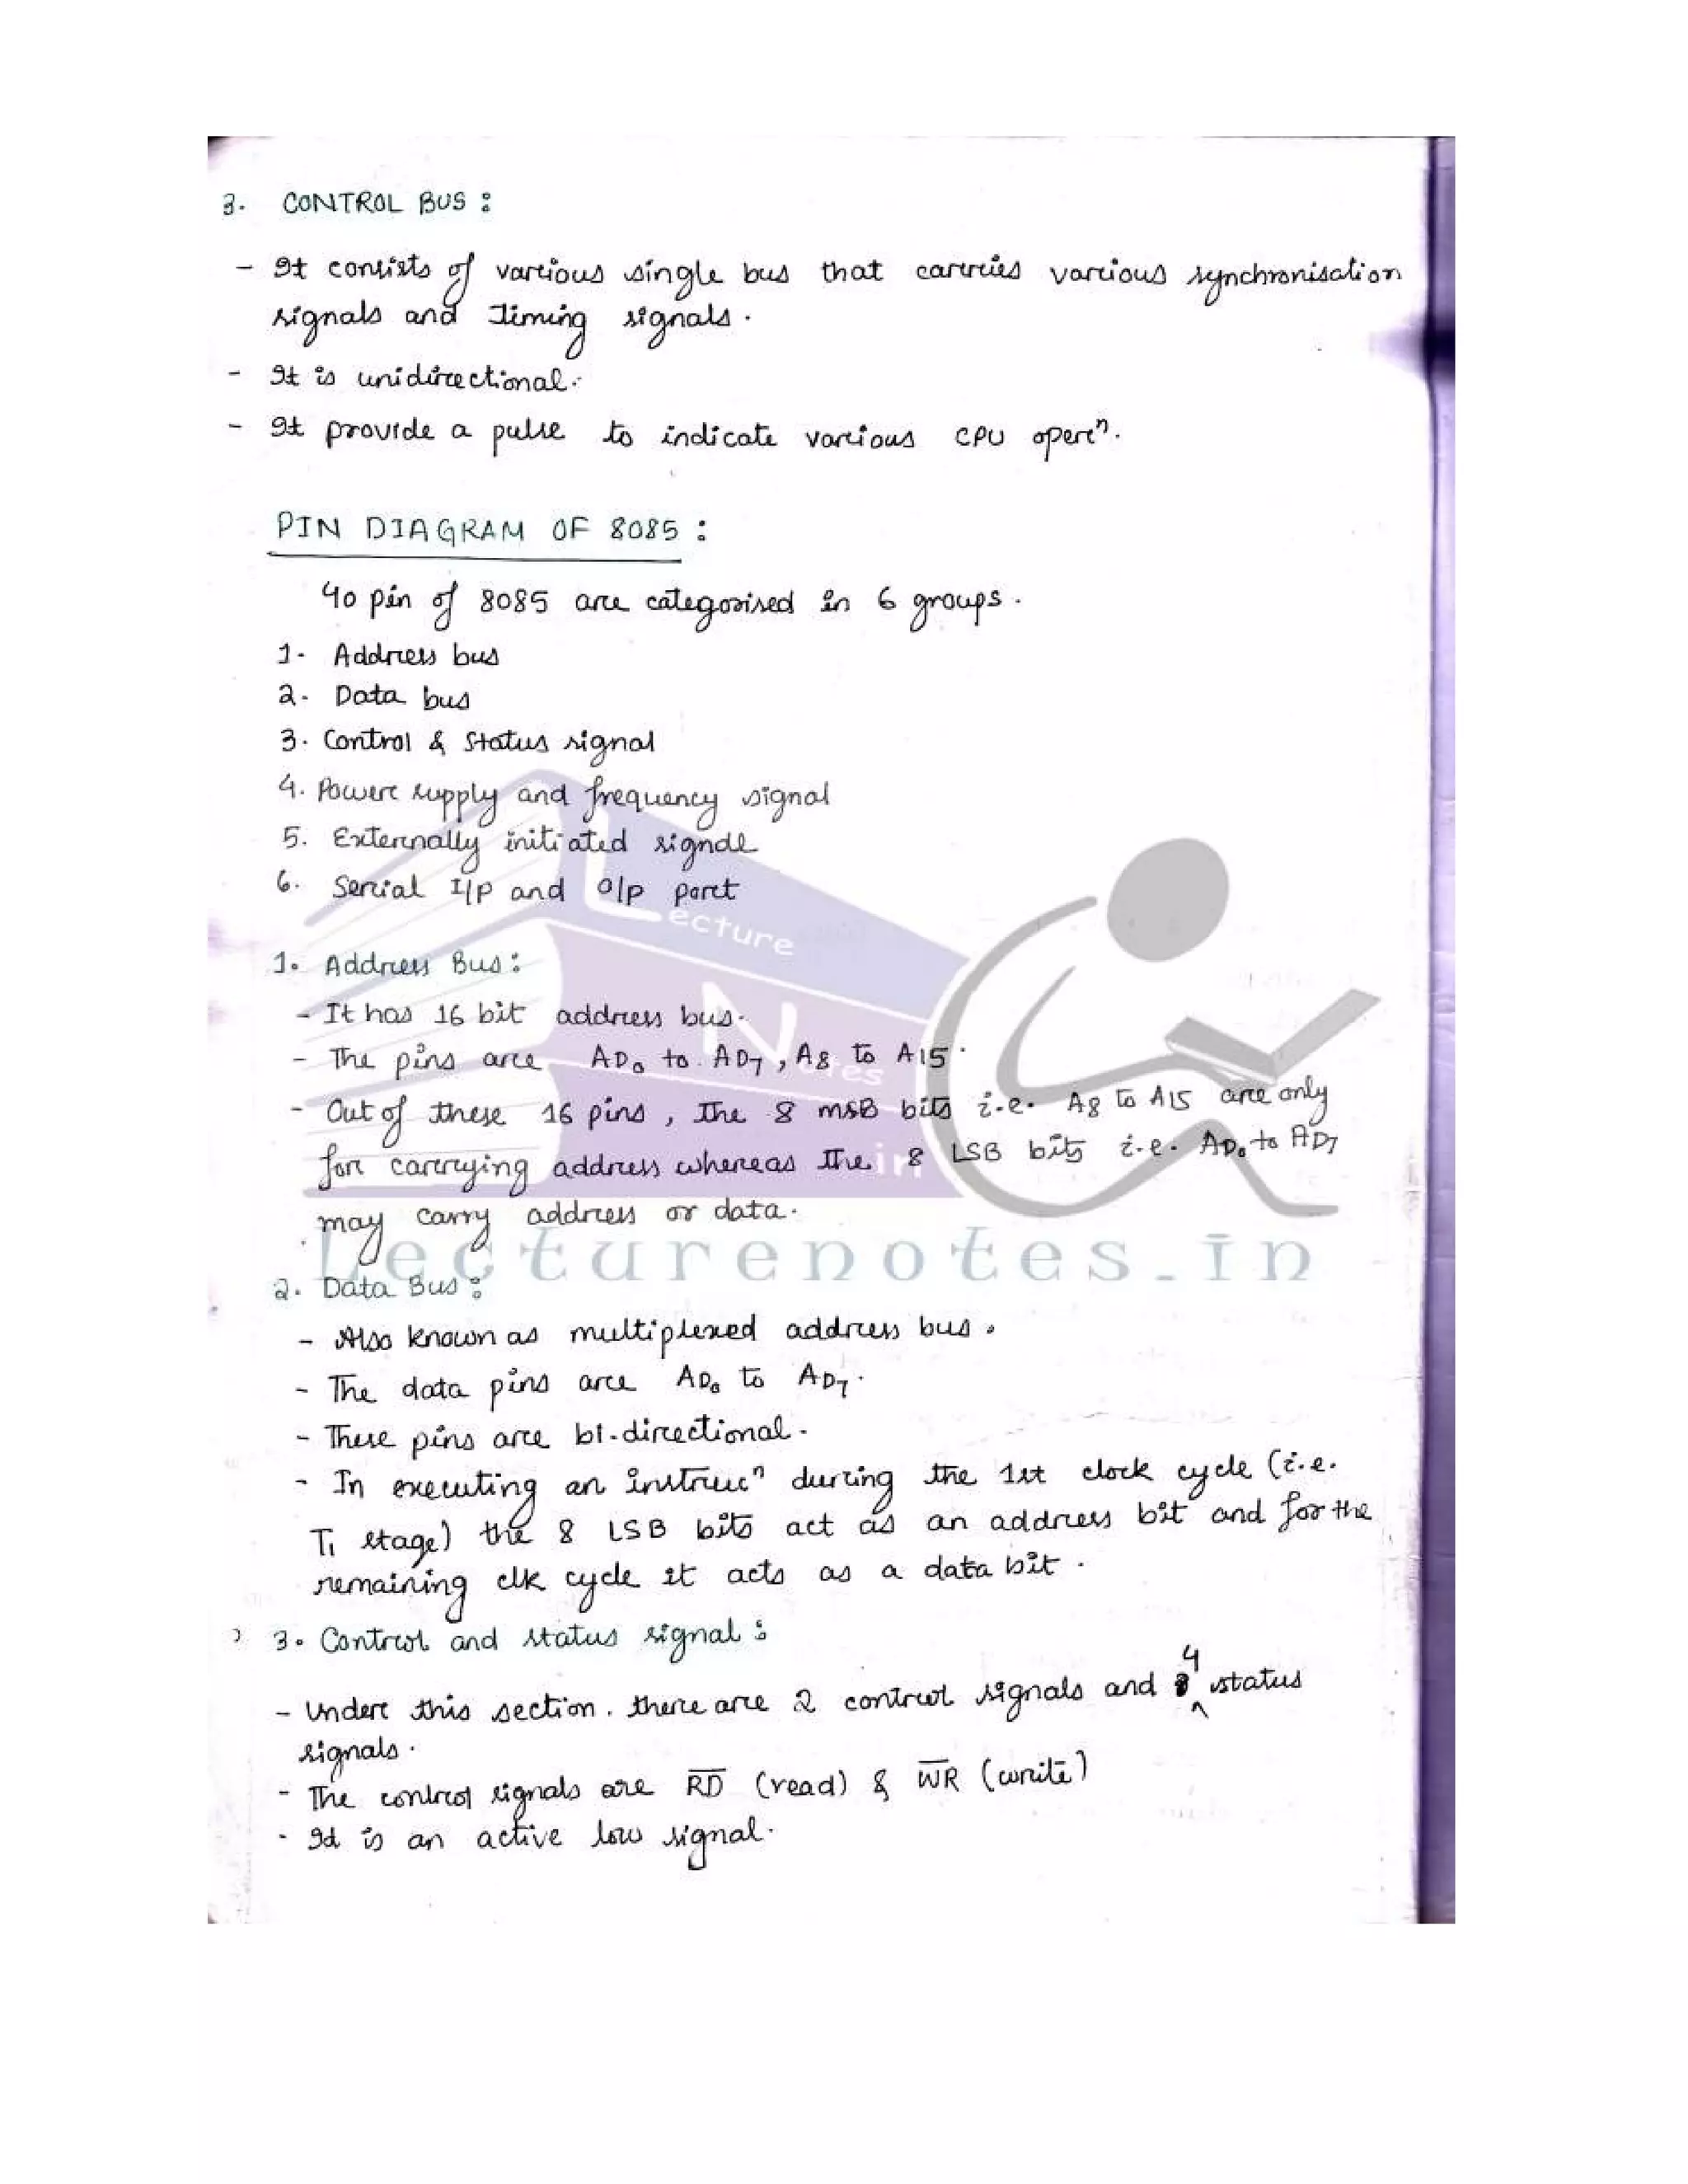 3. CONTROL BUS :
- It consists of various single bus that carries various synchronisation
signals and Timing signals.
- It is unidirectional.
- It provide a pulse to indicate various CPU opern.
PIN DIAGRAM OF 8085 :
40 pin of 8085 are categorised in 6 groups.
1. Address bus
2. Data bus
3. Control & Status signal
4. Power supply and frequency signal
5. Externally initiated signal
6. Serial I/p and O/p port
1. Address Bus :
- It has 16 bit address bus.
- The pins are AD0 to AD7, A8 to A15.
- Out of these 16 pins, The 8 MSB bits i.e. A8 to A15 are only
for carrying address whereas The 8 LSB bits i.e. AD0 to AD7
may carry address or data.
2. Data Bus :
- Also known as multiplexed address bus.
- The data pins are AD0 to AD7.
- These pins are bi-directional.
- In executing an instrucn during the 1st clock cycle (i.e.
T1 stage) the 8 LSB bits act as an address bit and for the
remaining clk cycle it acts as a data bit.
3. Control and status signal :
- Under this section. there are 2 control signals and 4 status
signals.
- The control signals are R̅D̅ (read) & W̅R̅ (write)
- It is an active low signal.
Lecture
Notes
in
Lecturenotes.in